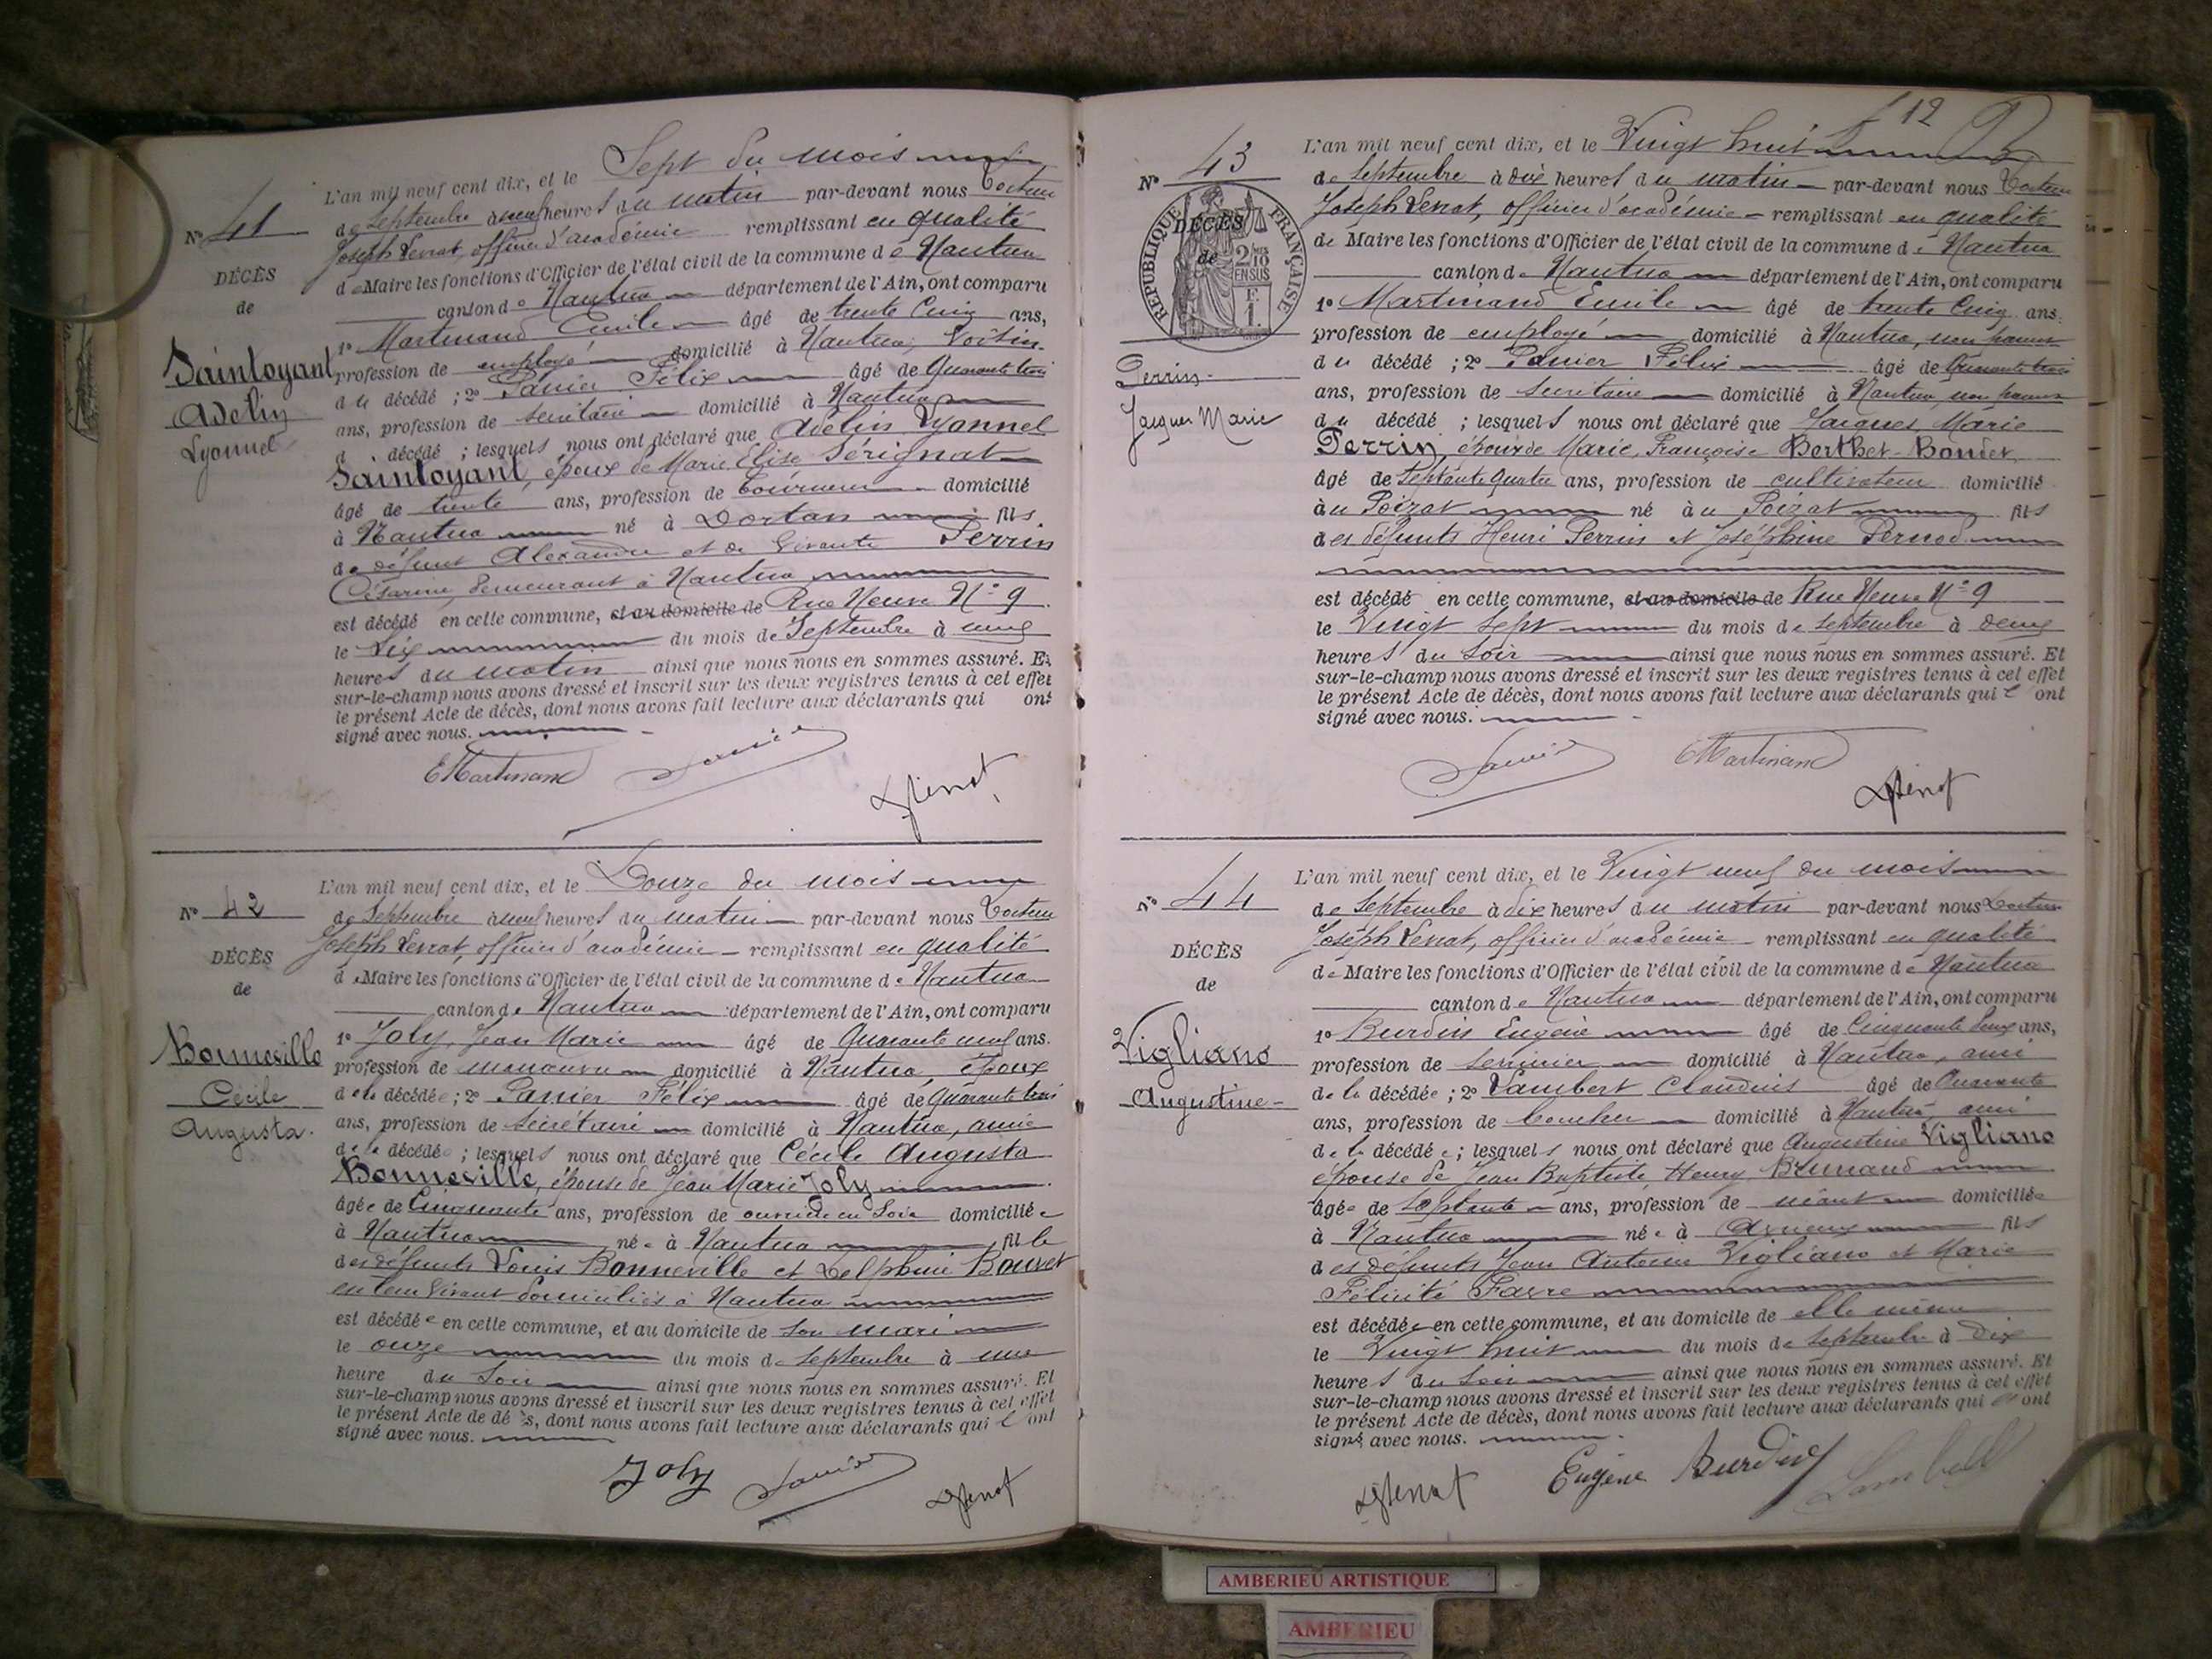 Nº 41
DÉCÈS
de
Saintoyant
Adelin
Lyonnel
L'an mil neuf cent dix, et le Sept du mois
de Septembre à neuf heures du matin par-devant nous Docteur
Joseph Versat, officier d'académie remplissant en qualité
de Maire les fonctions d'Officier de l'état civil de la commune de Nantua
canton de Nantua département de l'Ain, ont comparu
1º Martinand Emile âgé de trente Cinq ans,
profession de employé domicilié à Nantua, Voisin
du décédé ; 2º Panier Félix âgé de Quarante trois
ans, profession de secrétaire domicilié à Nantua
d décédé ; lesquels nous ont déclaré que Adelin Lyonnel
Saintoyant, époux de Marie Elise Sérignat
âgé de trente ans, profession de tourneur domicilié
à Nantua né à Dortan fils
de défunt Alexandre et de vivante Perrin
Césarine, demeurant à Nantua
est décédé en cette commune, et au domicile de Rue Neuve Nº 9
le Six du mois de Septembre à
heures du matin ainsi que nous nous en sommes assuré. Et
sur-le-champ nous avons dressé et inscrit sur les deux registres tenus à cet effet
le présent Acte de décès, dont nous avons fait lecture aux déclarants qui ont
signé avec nous.
EMartinand
Nº 42
DÉCÈS
de
Bonneville
Cécile
Augusta.
L'an mil neuf cent dix, et le Douze du mois
de Septembre à neuf heures du matin par-devant nous Docteur
Joseph Versat, officier d'académie remplissant en qualité
de Maire les fonctions d'Officier de l'état civil de la commune de Nantua
canton de Nantua département de l'Ain, ont comparu
1º Joly, Jean Marie âgé de Quarante neuf ans.
profession de manœuvre domicilié à Nantua, époux
de la décédée ; 2º Panier Félix âgé de Quarante trois
ans, profession de secrétaire domicilié à Nantua, ami
de la décédée ; lesquels nous ont déclaré que Cécile Augusta
Bonneville, épouse de Jean Marie Joly
âgée de Cinquante ans, profession de ouvrière en Soie domiciliée
à Nantua née à Nantua fille
des défunts Louis Bonneville et Delphine Bouvet
en leur vivant domiciliés à Nantua
est décédée en cette commune, et au domicile de son mari
le onze du mois de Septembre à une
heure du Soir ainsi que nous nous en sommes assuré. Et
sur-le-champ nous avons dressé et inscrit sur les deux registres tenus à cet effet
le présent Acte de décès, dont nous avons fait lecture aux déclarants qui ont
signé avec nous.
Joly
12
Nº 43
RÉPUBLIQUE FRANÇAISE
DÉCÈS
de
2/10 EN SUS
Perrin
Jacques Marie
L'an mil neuf cent dix, et le Vingt huit
de Septembre à dix heures du matin par-devant nous Docteur
Joseph Versat, officier d'académie remplissant en qualité
de Maire les fonctions d'Officier de l'état civil de la commune de Nantua
canton de Nantua département de l'Ain, ont comparu
1º Martinand Emile âgé de trente Cinq ans.
profession de employé domicilié à Nantua, non parent
du décédé ; 2º Panier Félix âgé de Quarante trois
ans, profession de secrétaire domicilié à Nantua, non parent
du décédé ; lesquels nous ont déclaré que Jacques Marie
Perrin, époux de Marie Françoise Berthet-Bondet
âgé de Septante Quatre ans, profession de cultivateur domicilié
au Poizat né au Poizat fils
des défunts Henri Perrin et Joséphine Pernod
est décédé en cette commune, et au domicile de Rue Neuve Nº 9
le Vingt Sept du mois de Septembre à deux
heures du Soir ainsi que nous nous en sommes assuré. Et
sur-le-champ nous avons dressé et inscrit sur les deux registres tenus à cet effet
le présent Acte de décès, dont nous avons fait lecture aux déclarants qui ont
signé avec nous.
EMartinand
Nº 44
DÉCÈS
de
Vigliano
Augustine
L'an mil neuf cent dix, et le Vingt neuf du mois
de Septembre à dix heures du matin par-devant nous Docteur
Joseph Versat, officier d'académie remplissant en qualité
de Maire les fonctions d'Officier de l'état civil de la commune de Nantua
canton de Nantua département de l'Ain, ont comparu
1º Burdin Eugène âgé de Cinquante deux ans,
profession de serrurier domicilié à Nantua, ami
de la décédée ; 2º Lambert Claudius âgé de Quarante
ans, profession de boucher domicilié à Nantua, ami
de la décédée ; lesquels nous ont déclaré que Augustine Vigliano
épouse de Jean Baptiste Henry Brunand
âgée de Septante ans, profession de néant domiciliée
à Nantua née à fils
des défunts Jean Antoine Vigliano et Marie
Félicité Favre
est décédée en cette commune, et au domicile de elle même
le Vingt huit du mois de Septembre à Dix
heures du Soir ainsi que nous nous en sommes assuré. Et
sur-le-champ nous avons dressé et inscrit sur les deux registres tenus à cet effet
le présent Acte de décès, dont nous avons fait lecture aux déclarants qui ont
signé avec nous.
Eugène Burdin
AMBERIEU ARTISTIQUE
AMBERIEU